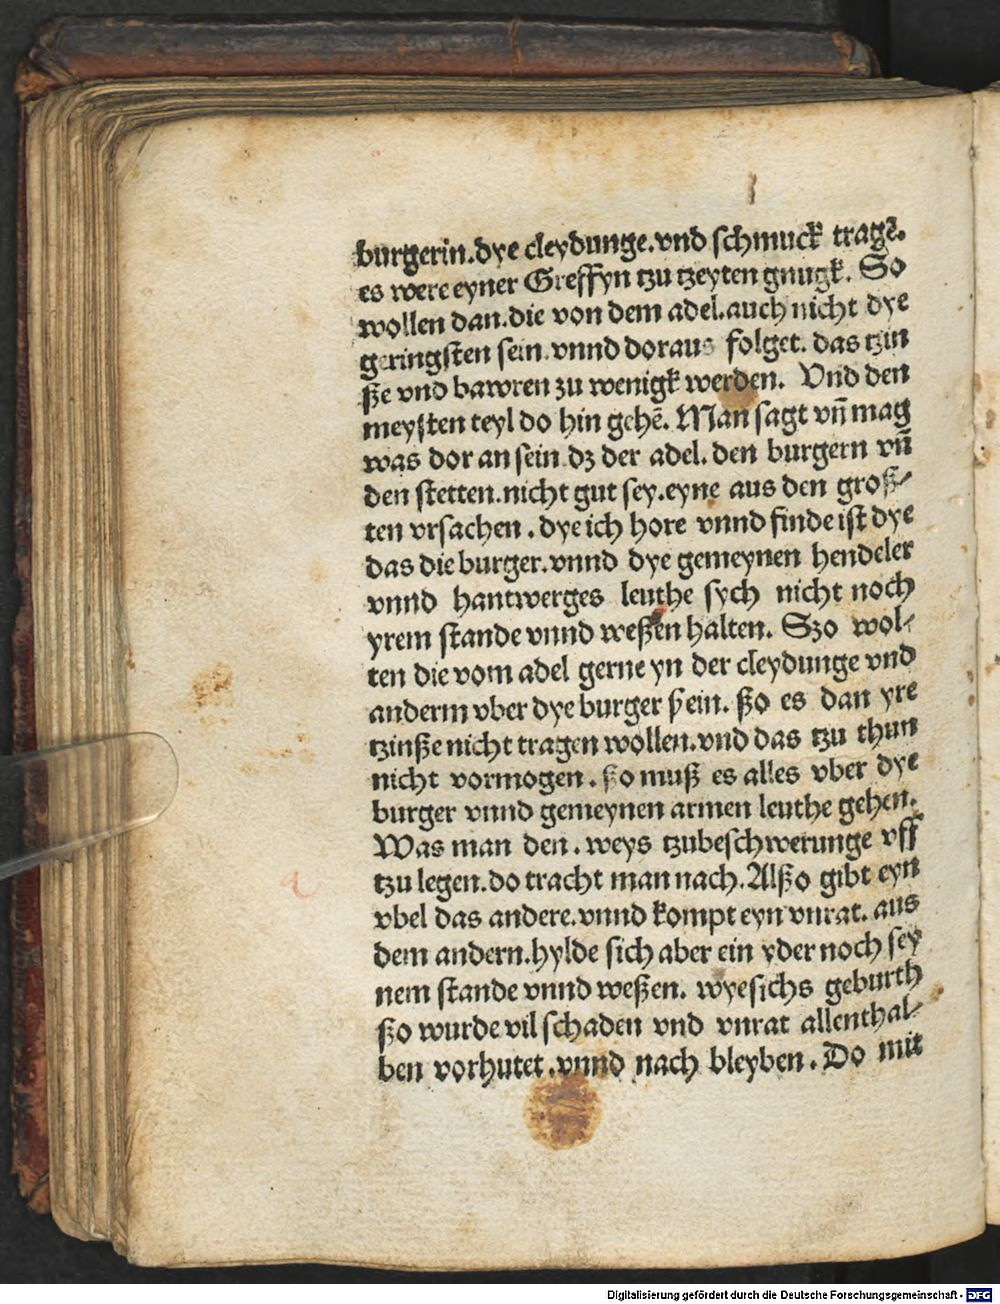 burgerin.dye cleydunge.vnd schmuck tragē.
es were eyner Greffyn tzu tzeyten gnugk. So
wollen dan.die von dem adel.auch nicht dye
geringsten sein.vnnd doraus folget. das tzin
ße vnd bawren zu wenigk werden. Vnd den
meysten teyl do hin gehē. Man sagt vn̄ mag
was dor an sein dz der adel. den burgern vn̄
den stetten.nicht gut sey.eyne aus den groß⸗
ten vrsachen. dye ich hore vnnd finde ist dye
das die burger.vnnd dye gemeynen hendeler
vnnd hantwerges leuthe sych nicht noch
yrem stande vnnd weßen halten. Szo wol⸗
ten die vom adel gerne yn der cleydunge vnd
anderm vber dye burger sein. ßo es dan yre
tzinße nicht tragen wollen.vnd das tzu thun
nicht vormogen. ßo muß es alles vber dye
burger vnnd gemeynen armen leuthe gehen.
Was man den. weys tzubeschwerunge vff
tzu legen.do tracht man nach. Alßo gibt eyn
vbel das andere.vnnd kompt eyn vnrat. aus
dem andern.hylde sich aber ein yder noch sey
nem stande vnnd weßen. wyesichs geburth
ßo wurde vil schaden vnd vnrat allenthal⸗
ben vorhutet.vnnd nach bleyben. Do mit
Digitalisierung gefördert durch die Deutsche Forschungsgemeinschaft - DFG